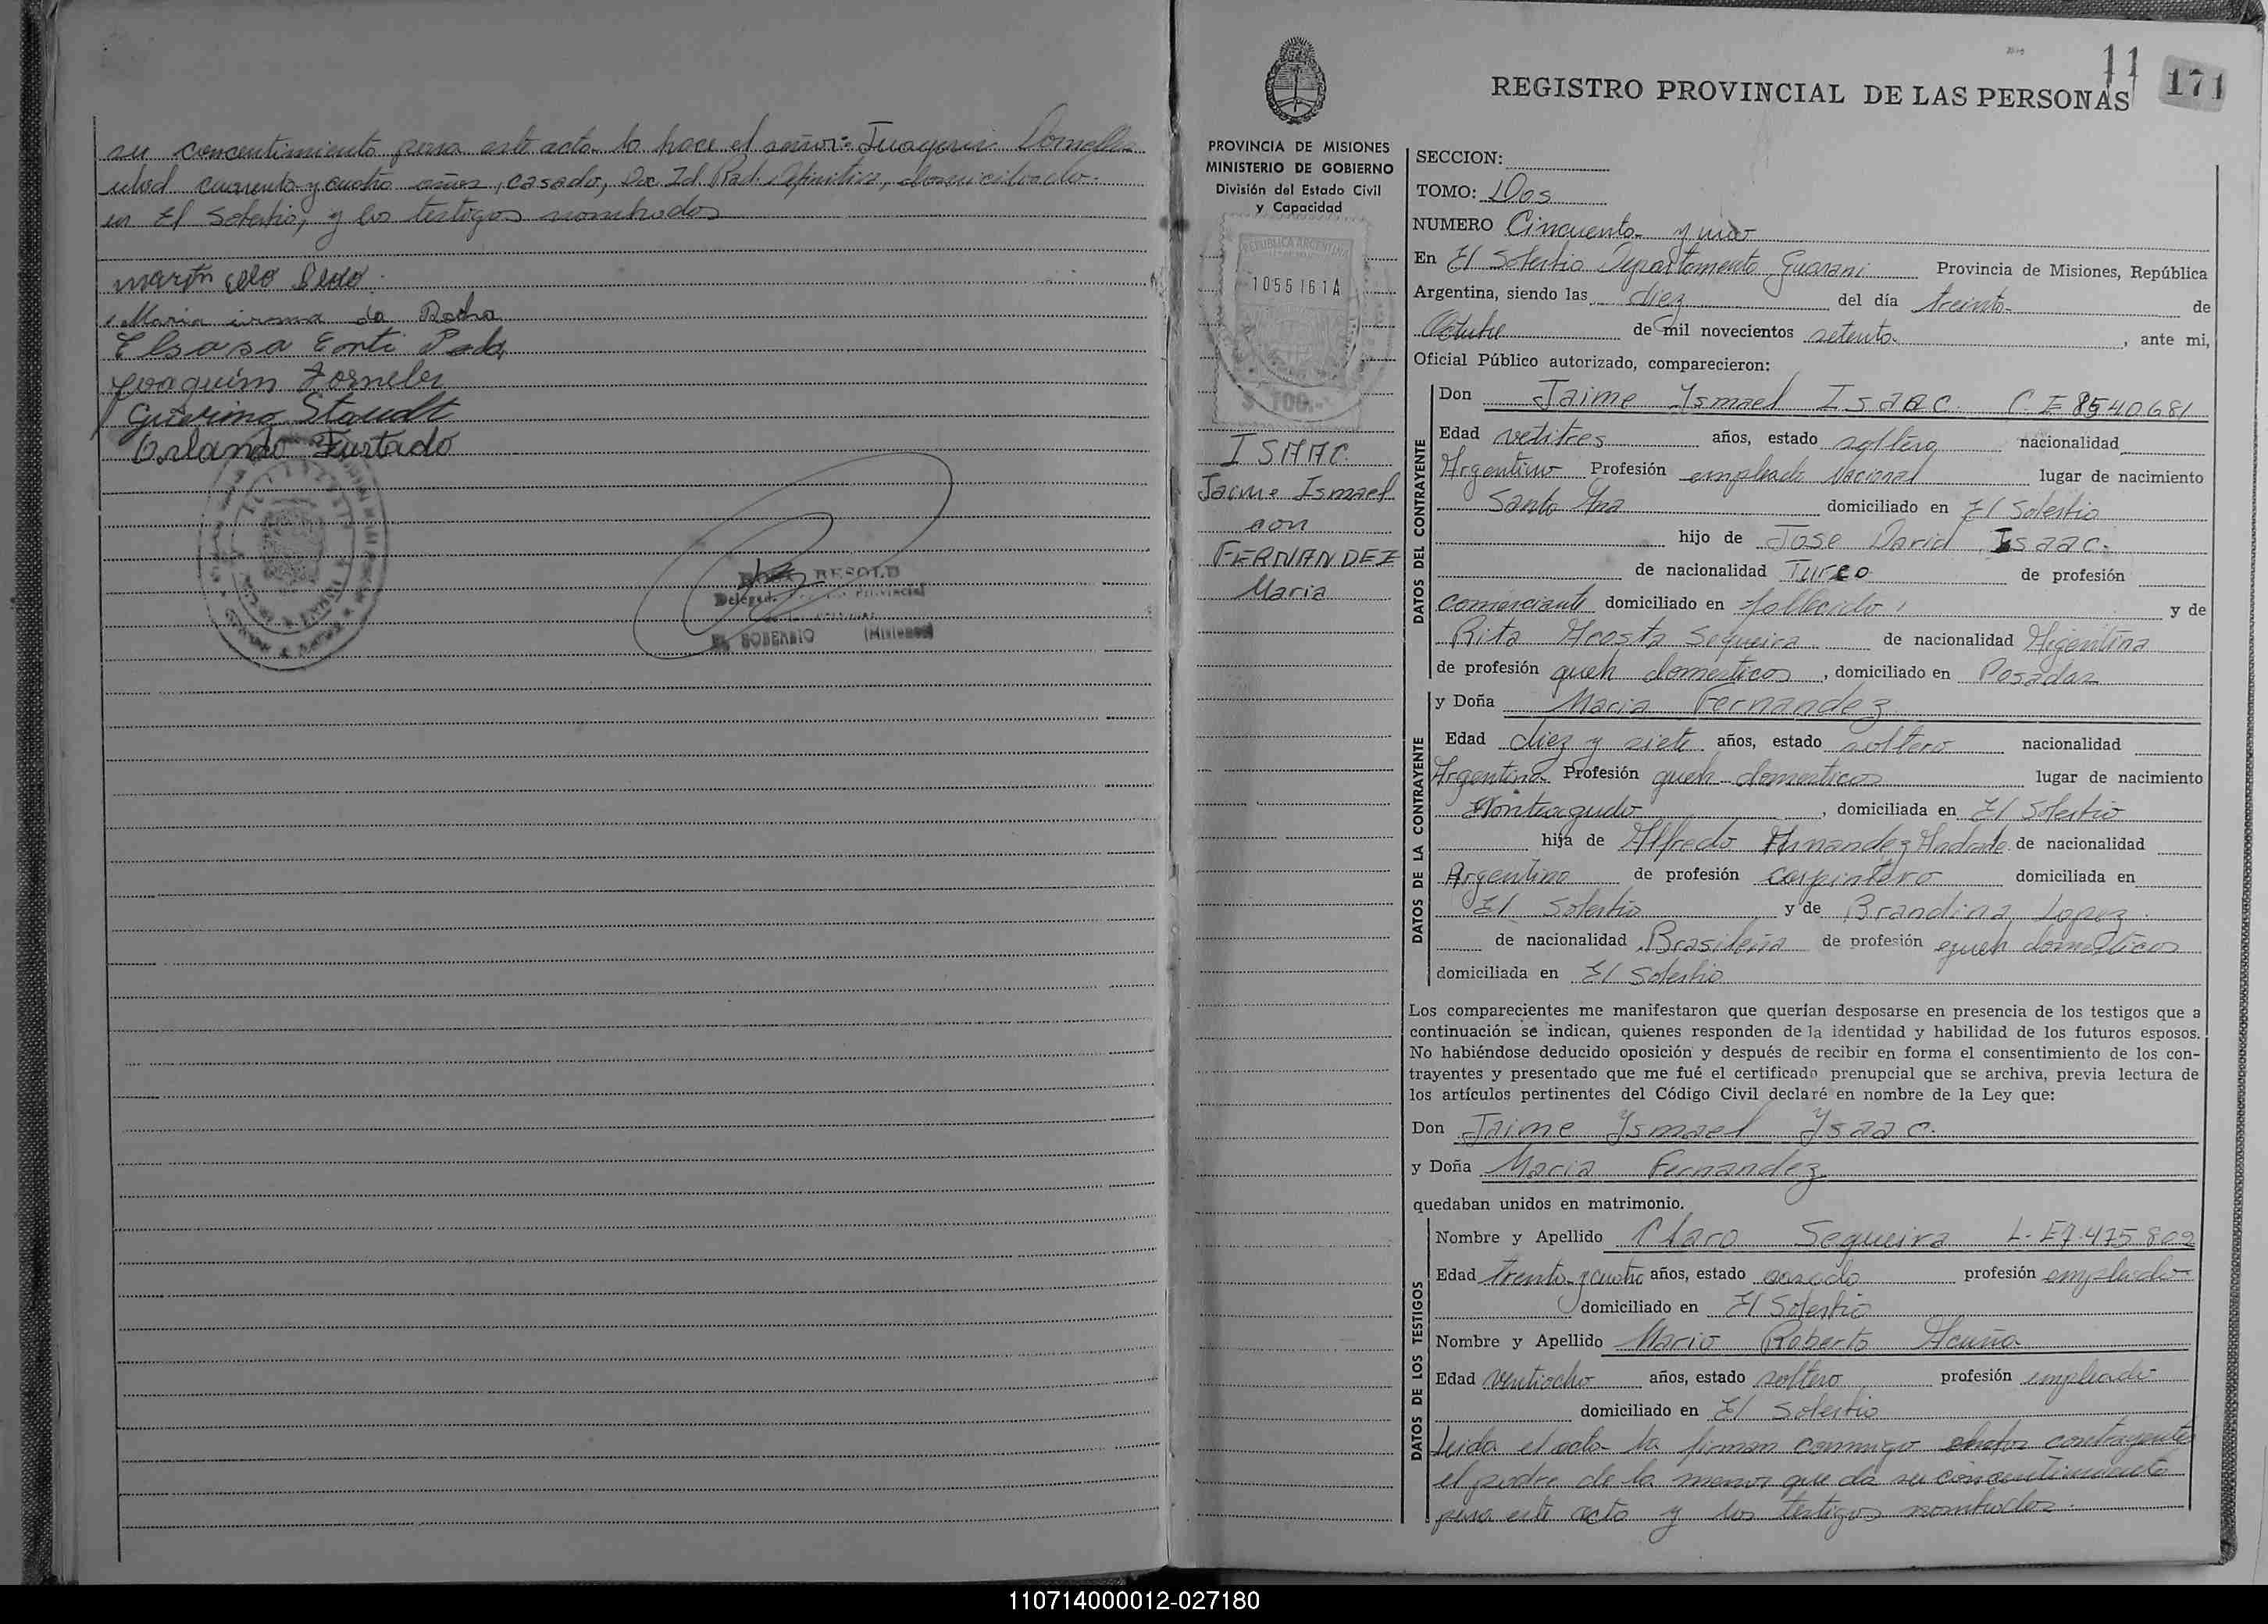 su concentimiento para este acto lo hace el señor: Juaquin Dornelles
edad cuarenta y cuatro años, casado, Doc. Id. Rad. Definitiva, domiciliado
en El Soberbio, y los testigos nombrados
Maria irema da Rocha
Joaquim Dorneles
Guerino Staudt
Orlando Furtado
RESOLD
EL SOBERBIO (Misiones)
11
171
REGISTRO PROVINCIAL DE LAS PERSONAS
PROVINCIA DE MISIONES
MINISTERIO DE GOBIERNO
División del Estado Civil
y Capacidad
REPUBLICA ARGENTINA
1055161A
$ 100.-
ISAAC
Jaime Ismael
con
FERNANDEZ
Maria
SECCION:
TOMO: Dos
NUMERO Cincuenta y uno
En El Soberbio Departamento Guarani Provincia de Misiones, República
Argentina, siendo las diez del día treinta de
Octubre de mil novecientos setenta, ante mi,
Oficial Público autorizado, comparecieron:
DATOS DEL CONTRAYENTE
Don Jaime Ismael Isaac. C.I 8540681
Edad vetitres años, estado soltero nacionalidad
Argentino Profesión empleado Nacional lugar de nacimiento
Santa Ana domiciliado en El Soberbio
hijo de Jose David Isaac.
de nacionalidad Turco de profesión
comerciante domiciliado en fallecido, y de
Rita Acosta Sequeira de nacionalidad Argentina
de profesión queh domesticos, domiciliado en Posadas
DATOS DE LA CONTRAYENTE
y Doña Maria Fernandez
Edad diez y siete años, estado soltera nacionalidad
Argentina Profesión queh domesticos lugar de nacimiento
Monteagudo, domiciliada en El Soberbio
hija de Alfredo Fernandez Andrade de nacionalidad
Argentino de profesión carpintero domiciliada en
El Soberbio y de Brandina Lopez.
de nacionalidad Brasileña de profesión queh domesticos
domiciliada en El Soberbio
Los comparecientes me manifestaron que querían desposarse en presencia de los testigos que a
continuación se indican, quienes responden de la identidad y habilidad de los futuros esposos.
No habiéndose deducido oposición y después de recibir en forma el consentimiento de los con-
trayentes y presentado que me fué el certificado prenupcial que se archiva, previa lectura de
los artículos pertinentes del Código Civil declaré en nombre de la Ley que:
Don Jaime Ysmael Ysaac.
y Doña Maria Fernandez
quedaban unidos en matrimonio.
DATOS DE LOS TESTIGOS
Nombre y Apellido Claro Sequeira L.E 7.475.802
Edad trenta y cuatro años, estado casado profesión empleado
domiciliado en El Soberbio
Nombre y Apellido Mario Roberto Acuña
Edad ventiocho años, estado soltero profesión empleado
domiciliado en El Soberbio
Leida el acta la firman conmigo contrayentes
el padre de la menor que da su concentimiento
para este acto y los testigos nombrados.
110714000012-027180